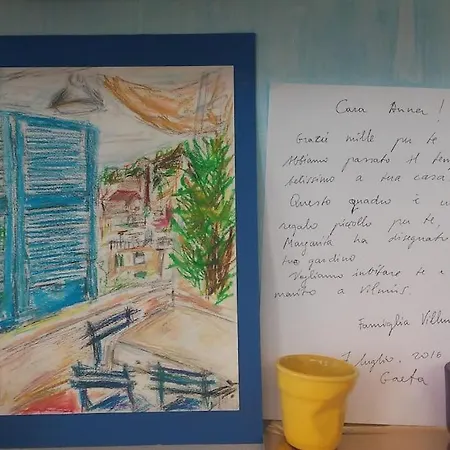 Cara Anna!
Grazie mille per te
Abbiamo passato il tem
bellissimo a tua casa
Questo quadro è un
regalo piccollo per te,
Margarita ha disegnat
tuo giardino
Vogliamo invitare te e
marito a Vilnius.
Famiglia Villiu
7 luglio, 2016
Gaeta